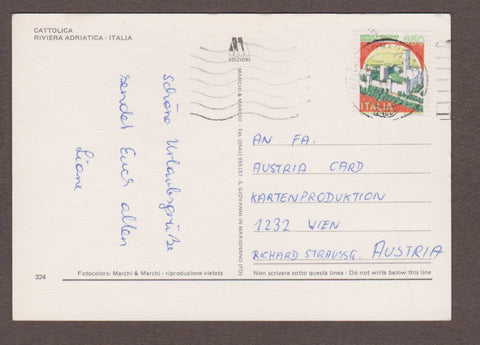 CATTOLICA
RIVIERA ADRIATICA - ITALIA
EDIZIONI
650
ITALIA
schöne Urlaubsgrüße
sendet Euch allen
Liane
MARCHI & MARCHI - Tel. (0541) 955197 - S. GIOVANNI IN MARIGNANO (FO)
AN FA.
AUSTRIA CARD
KARTENPRODUKTION
1232 WIEN
RICHARD STRAUSSG. AUSTRIA
324
Fotocolors: Marchi & Marchi - riproduzione vietata
Non scrivere sotto questa linea - Do not write below this line